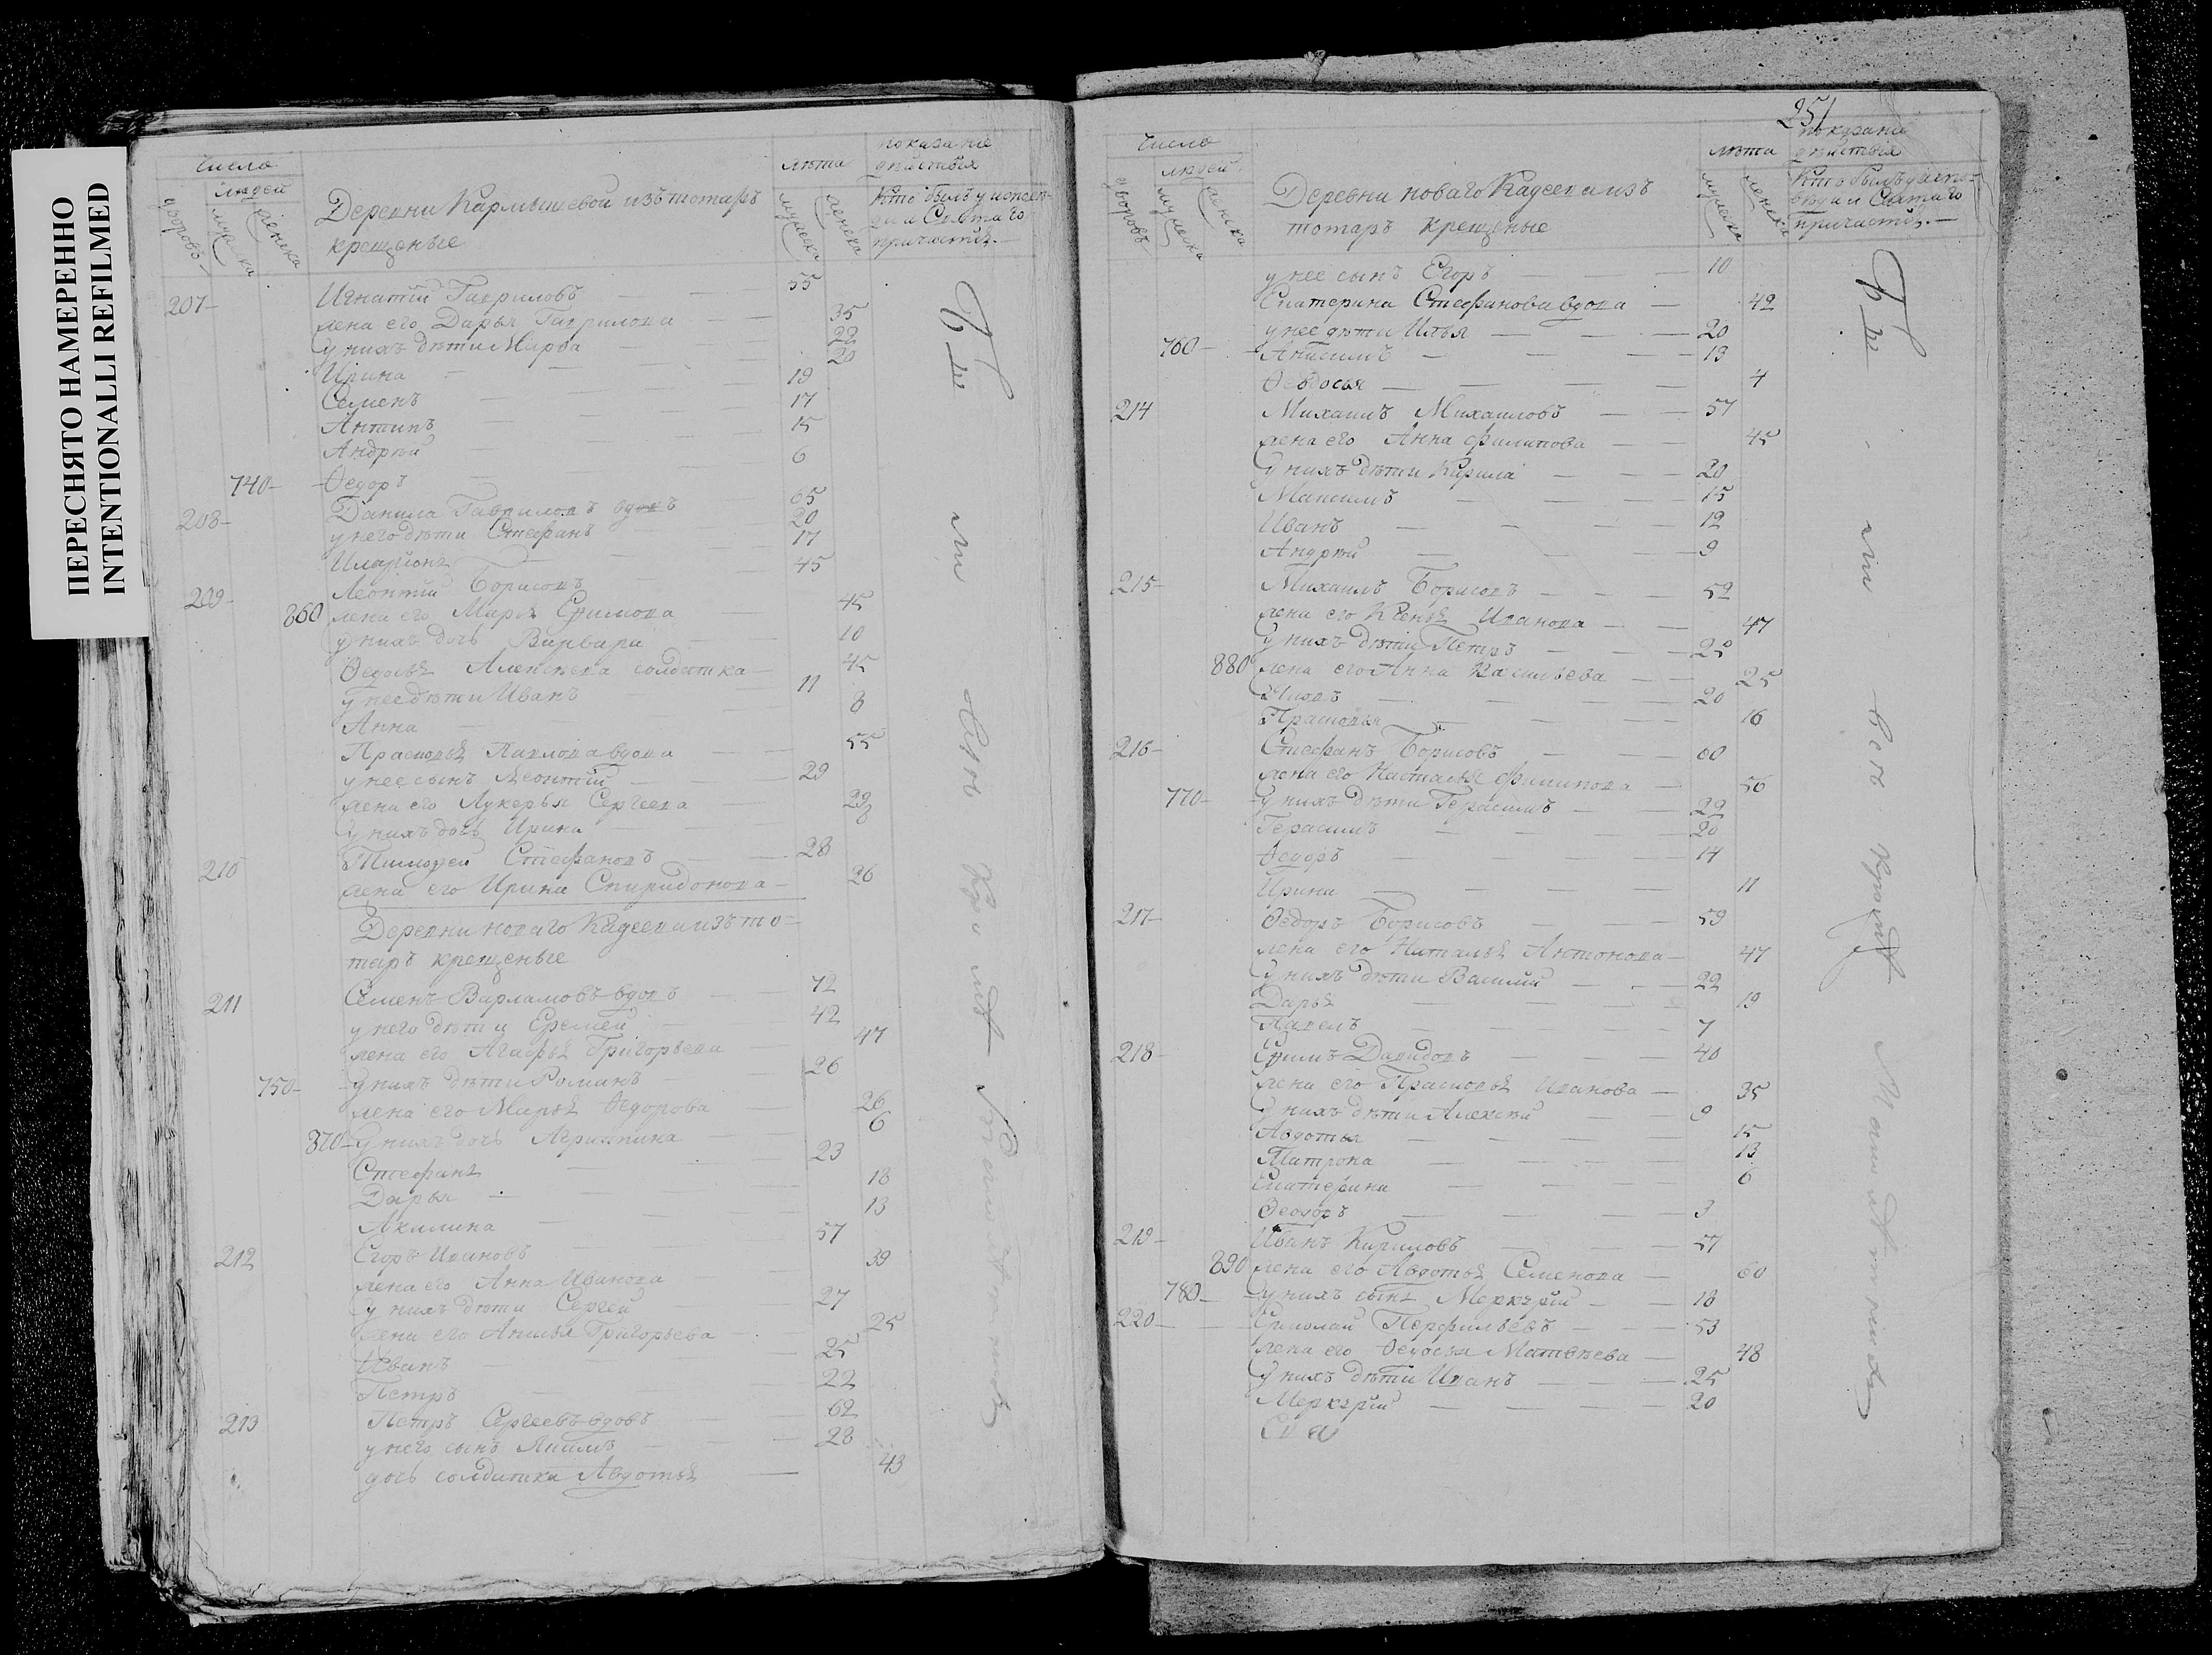 ПЕРЕСНЯТО НАМЕРЕННО
INTENTIONALLI REFILMED
число
людей
дворовъ
мужеска
женска
Деревни Кармышевой изъ тотаръ
крещеные
лѣта
мужеска
женска
показаніе
дѣйствія
Кто былъ у испове-
ди и Святаго
причастія.
207 Игнатій Гавриловъ 55
жена его Дарья Гаврилова 35
у нихъ дѣти Марѳа 22
Ирина 20
Семенъ 19
Антипъ 17
Андрей 15
740 Ѳедоръ 6
208 Данила Гавриловъ вдовъ 65
у него дѣти Стефанъ 20
Иларіонъ 17
209 Леонтій Борисовъ 45
860 жена его Марья Ефимова 45
у нихъ дочь Варвара 10
Ѳедосья Алексѣева солдатка 45
у нее дѣти Иванъ 11
Анна 8
Прасковья Павлова вдова 55
у нее сынъ Леонтій 29
жена его Лукерья Сергеева 29
у нихъ дочь Ирина 8
210 Тимофей Стефановъ 28
жена его Ирина Спиридонова 26
Деревни новаго Кадеева изъ то-
таръ крещеные
211 Семенъ Варламовъ вдовъ 72
у него дѣти Еремей 42
жена его Агафья Григорьева 47
750 у нихъ дѣти Романъ 26
жена его Марья Ѳедорова 26
870 у нихъ дочь Агрипина 6
Стефанъ 23
Дарья 18
Акилина 13
212 Егоръ Ивановъ 57
жена его Анна Иванова 39
у нихъ дѣти Сергей 27
жена его Анисья Григорьева 25
Иванъ 25
Петръ 22
213 Петръ Сергеевъ вдовъ 62
у него сынъ Якимъ 28
дочь солдатка Авдотья 43
251
число
людей
дворовъ
мужеска
женска
Деревни новаго Кадеева изъ
тотаръ крещеные
лѣта
мужеска
женска
показаніе
дѣйствія
Кто былъ у испо-
вѣди и Святаго
причастія.
у нее сынъ Егоръ 10
Екатерина Стефанова вдова 42
у нее дѣти Илья 20
760 Анисимъ 13
Ѳеѡдосья 4
214 Михаилъ Михаиловъ 57
жена его Анна Филипова 45
у нихъ дѣти Кирила 20
Максимъ 15
Иванъ 12
Андрей 9
215 Михаилъ Борисовъ 52
жена его Ксенья Иванова 47
у нихъ дѣти Петръ 25
880 жена его Анна Васильева 25
20
Прасковья 16
216 Стефанъ Борисовъ 60
жена его Насталья Филипова 56
770 у нихъ дѣти Герасимъ 22
Герасимъ 20
Ѳедоръ 14
Ирина 11
217 Ѳедоръ Борисовъ 59
жена его Наталья Антонова 47
у нихъ дѣти Василій 22
Дарья 19
Павелъ 7
218 Ефимъ Давидовъ 40
жена его Прасковья Иванова 35
у нихъ дѣти Алексѣй 9
Авдотья 15
Матрона 13
Екатерина 6
Ѳеодоръ 3
219 Иванъ Кириловъ 57
890 жена его Авдотья Семенова 60
780 у нихъ сынъ Меркурій 18
220 Николай Перфильевъ 53
жена его Ѳедосья Матвѣева 48
у нихъ дѣти Иванъ 25
Меркурій 20